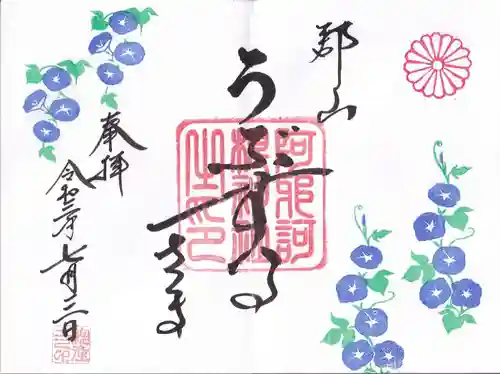 郡山
うぶすな
さま
阿邪訶
根神社
之印
奉拝
令和二年七月二日